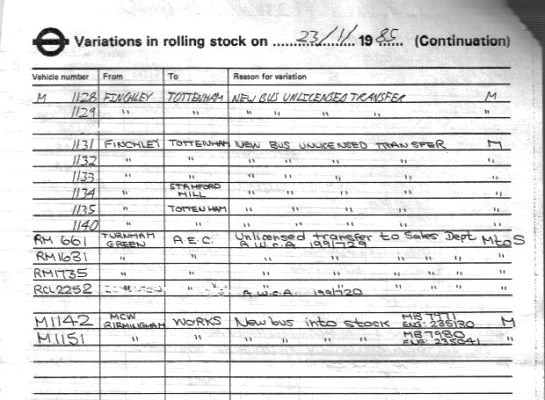 Variations in rolling stock on 23/11/ 19 85 (Continuation)
Vehicle number From To Reason for variation
M 1128 FINCHLEY TOTTENHAM NEW BUS UNLICENSED TRANSFER M
1129 " " " " " " "
1131 FINCHLEY TOTTENHAM NEW BUS UNLICENSED TRANSFER M
1132 " " " " " " "
1133 " " " " " " "
1134 " STAMFORD HILL " " " " "
1135 " TOTTENHAM " " " " "
1140 " " " " " " "
RM 661 TURNHAM GREEN A.E.C. Unlicensed transfer to Sales Dept M to S
A.W.C.A 1991/729
RM1631 " " " " " " " "
RM1735 " " " " " " " "
RCL2252 " " A.W.C.A. 1991/720
M1142 MCW BIRMINGHAM WORKS New bus into stock MB7971 M
ENG: 235130
M1151 " " " " " " MB7980 "
ENG: 235041